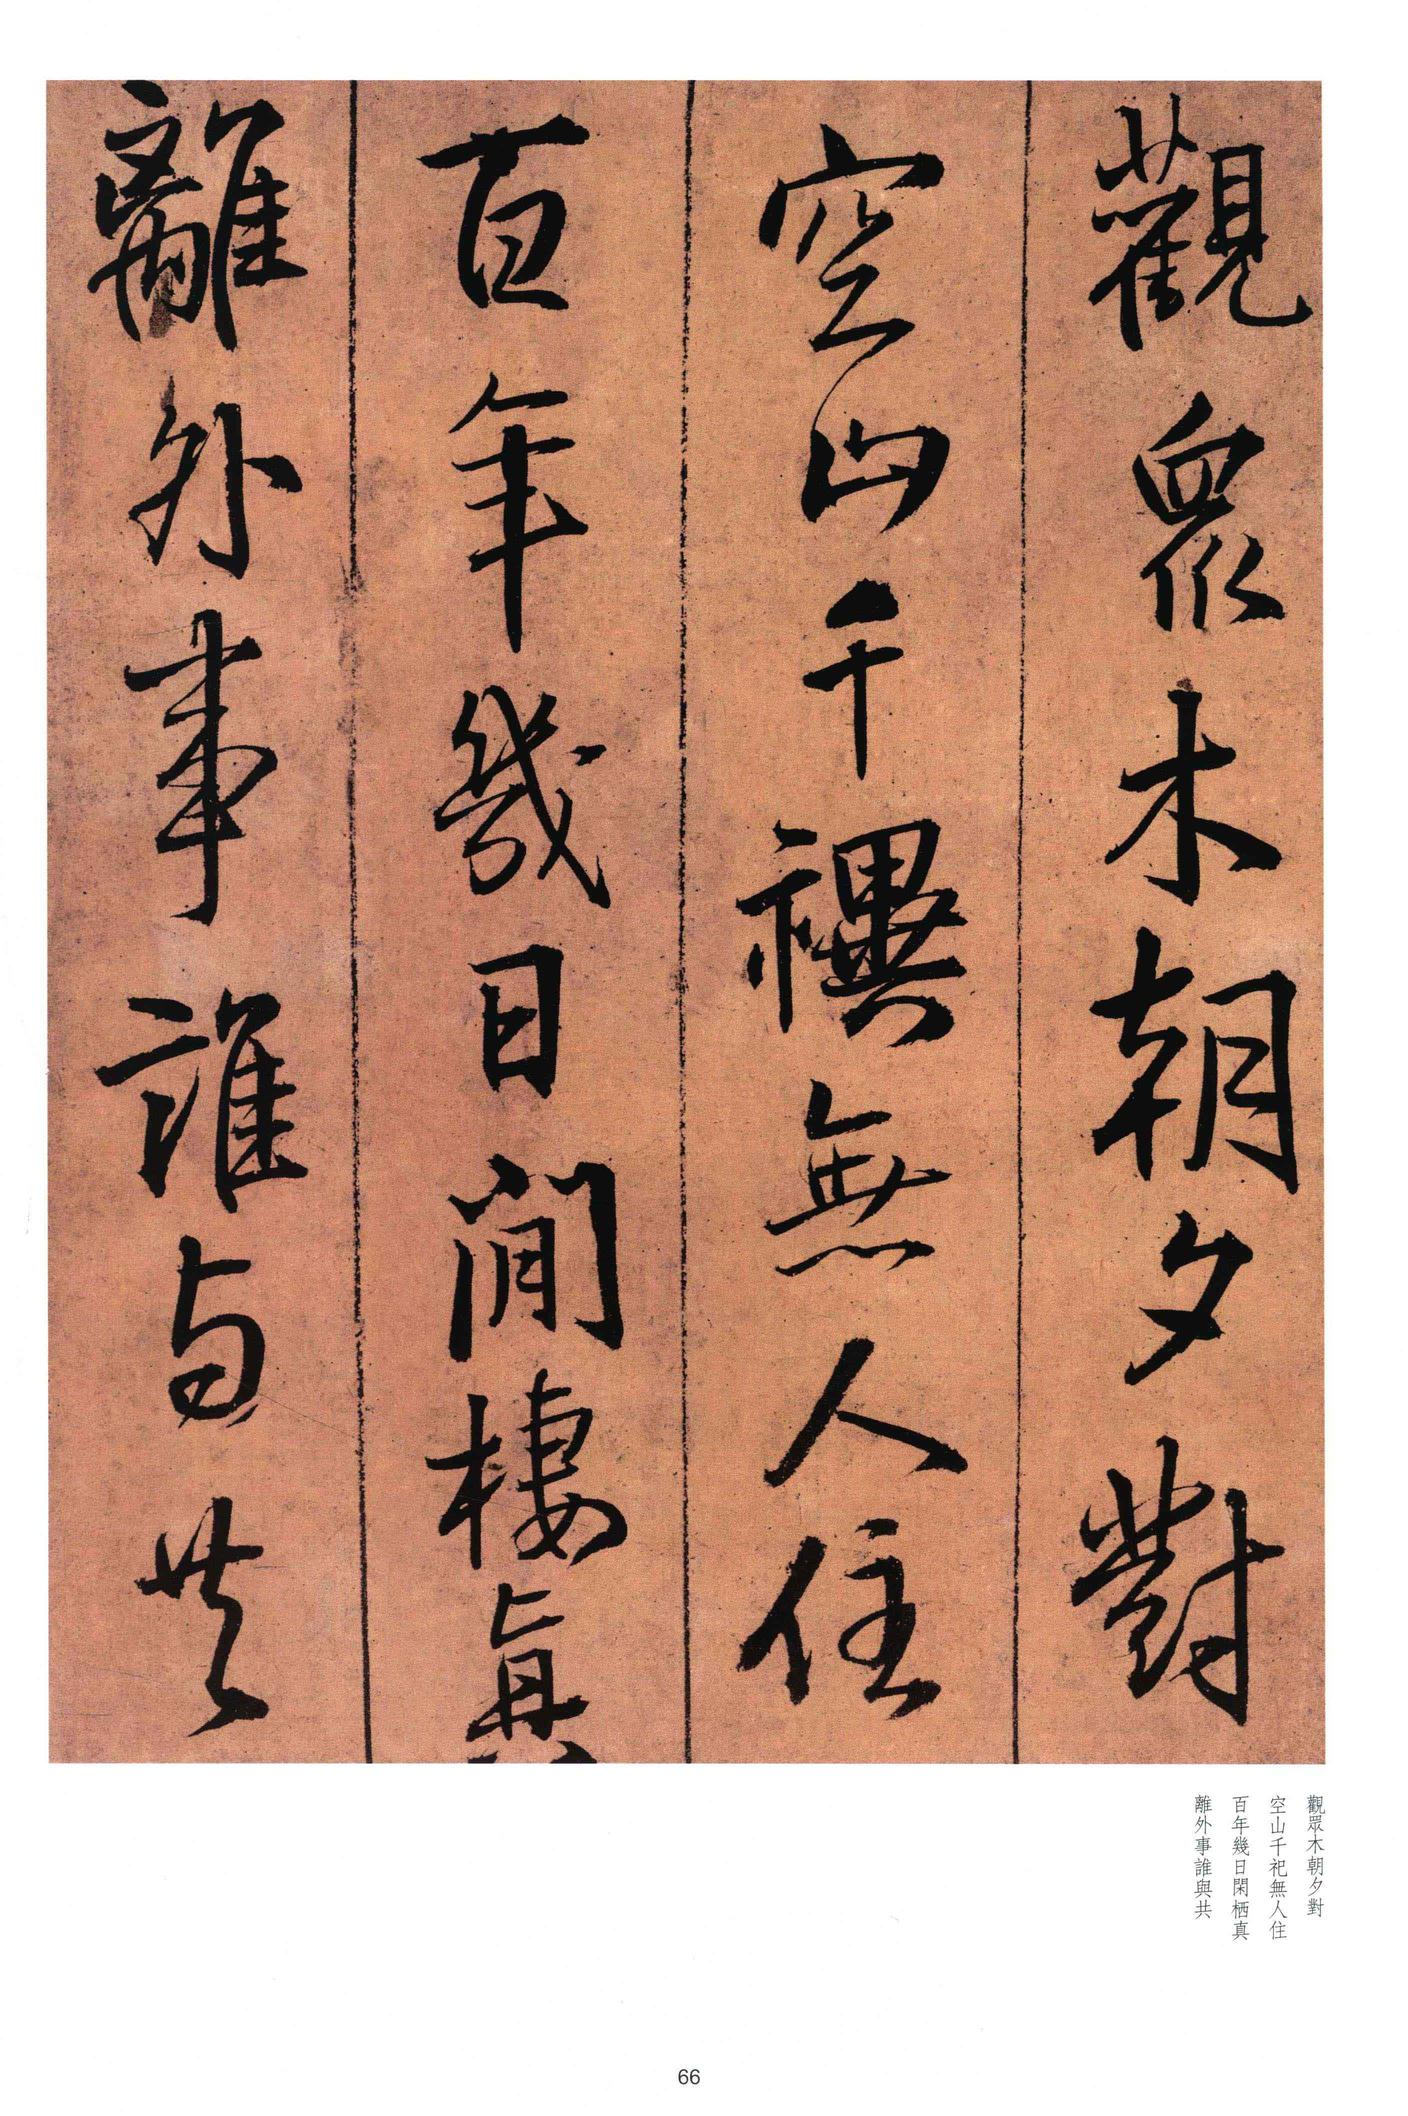 觀眾木朝夕對
空山千禩無人住
百年幾日閒棲真
離外事誰與共
觀眾木朝夕對
空山千祀無人住
百年幾日閑栖真
離外事誰與共
66